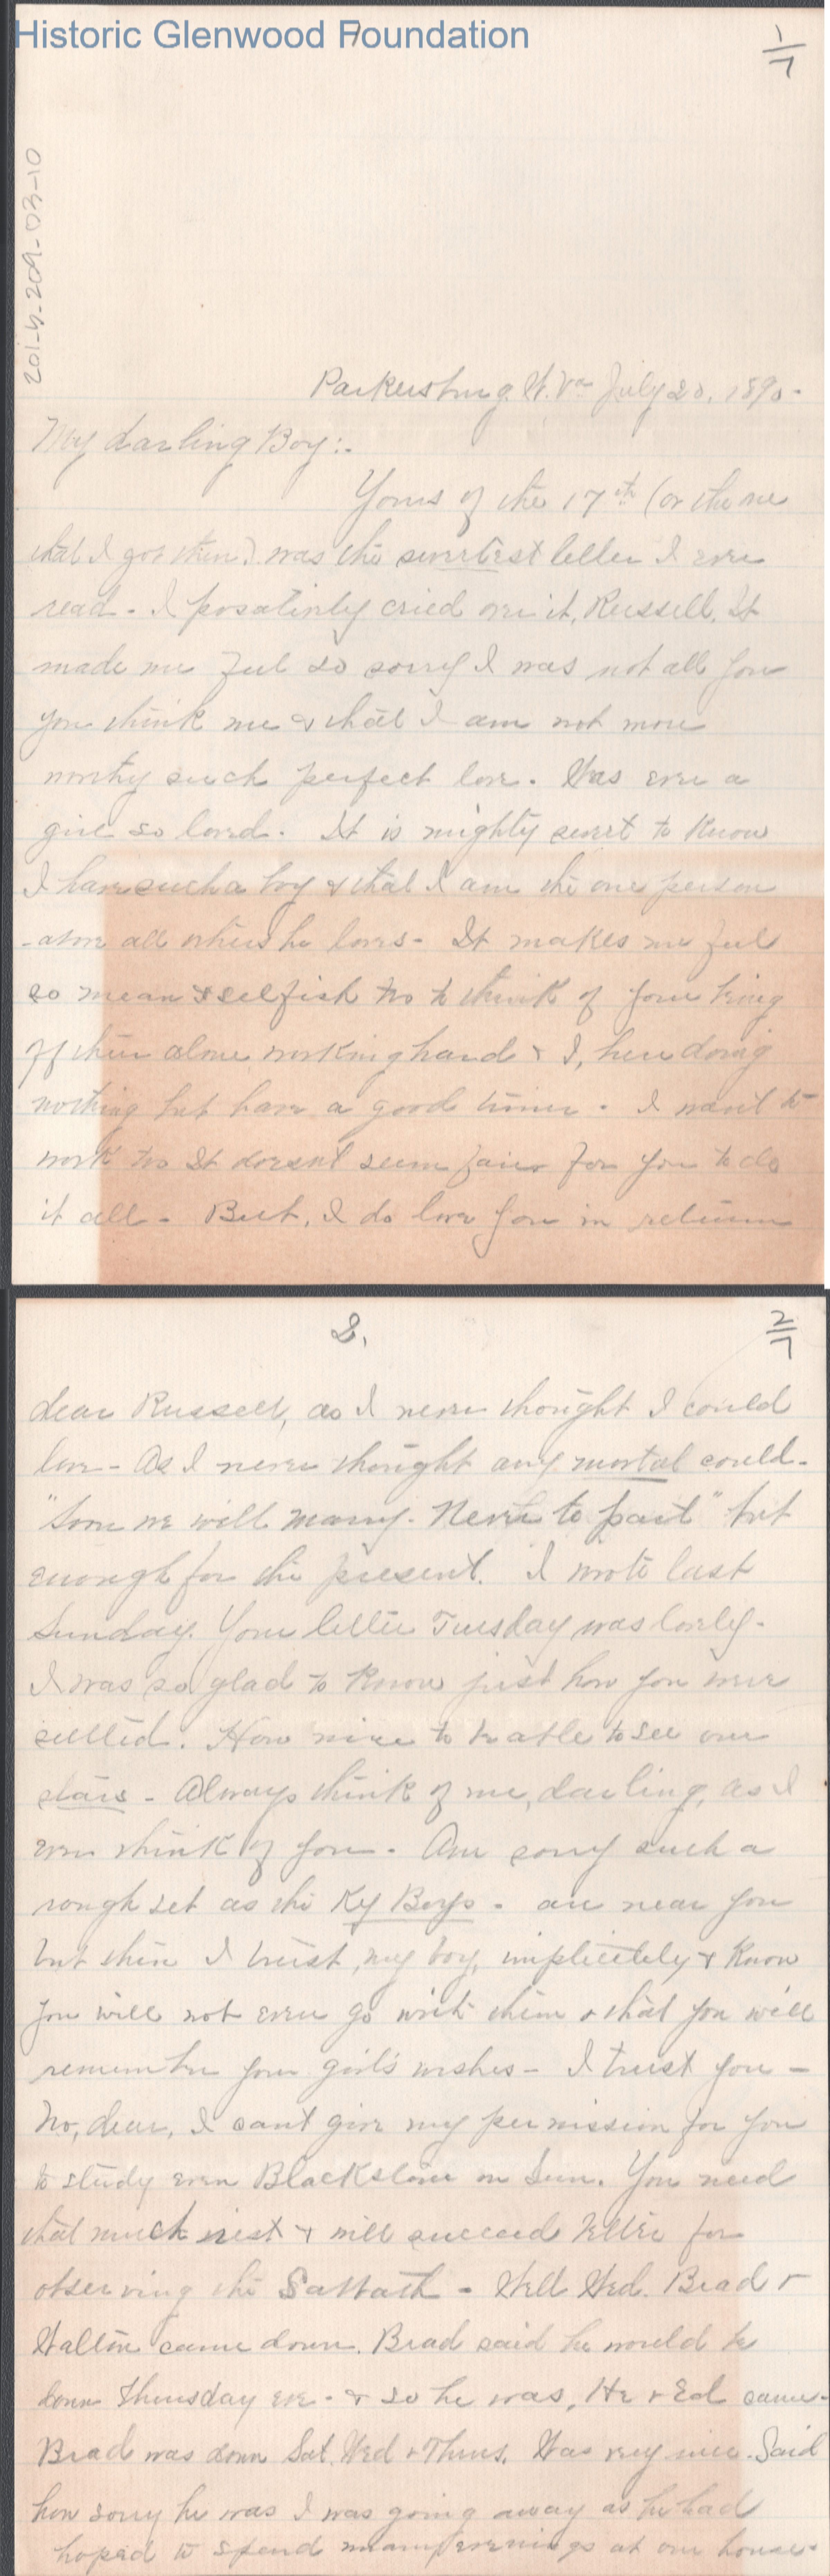 Historic Glenwood Foundation
1
1/7
2015-209-03-10
Parkersburg, W. Va July 20, 1890-
My darling Boy:-
Yours of the 17th (or the one
that I got then) was the sweetest letter I ever
read - I posatively cried over it, Russell, It
made me feel so sorry I was not all you
you think me & that I am not more
worthy such perfect love. Was ever a
girl so loved. It is mighty sweet to know
I have such a boy & that I am the one person
-above all others he loves- It makes me feel
so mean & selfish too to think of your being
off there alone working hard & I, here doing
nothing but have a good time. I want to
work too It doesnt seem fair for you to do
it all - But, I do love you in return
2.
2/7
dear Russell, as I never thought I could
love - As I never thought any mortal could.
"Soon we will marry. Never to part" but
enough for the present. I wrote last
Sunday. Your letter Tuesday was lovely.
I was so glad to know just how you were
settled. How nice to be able to see our
stars - Always think of me, darling, as I
ever think of you. Am sorry such a
rough set as the Ky Boys - are near you
but then I trust, my boy, implicitely & know
you will not even go with them & that you will
remember your girl's wishes - I trust you -
No, dear, I cant give my permission for you
to study even Blackstone on Sun. You need
that much rest & will succeed better for
observing the Sabbath - Well Wed. Brad &
Walton came down. Brad said he would be
down Thursday eve - & so he was, He & Ed came-
Brad was down Sat. Wed & Thurs. Was very nice. Said
how sorry he was I was going away as he had
hoped to spend many evenings at our house-